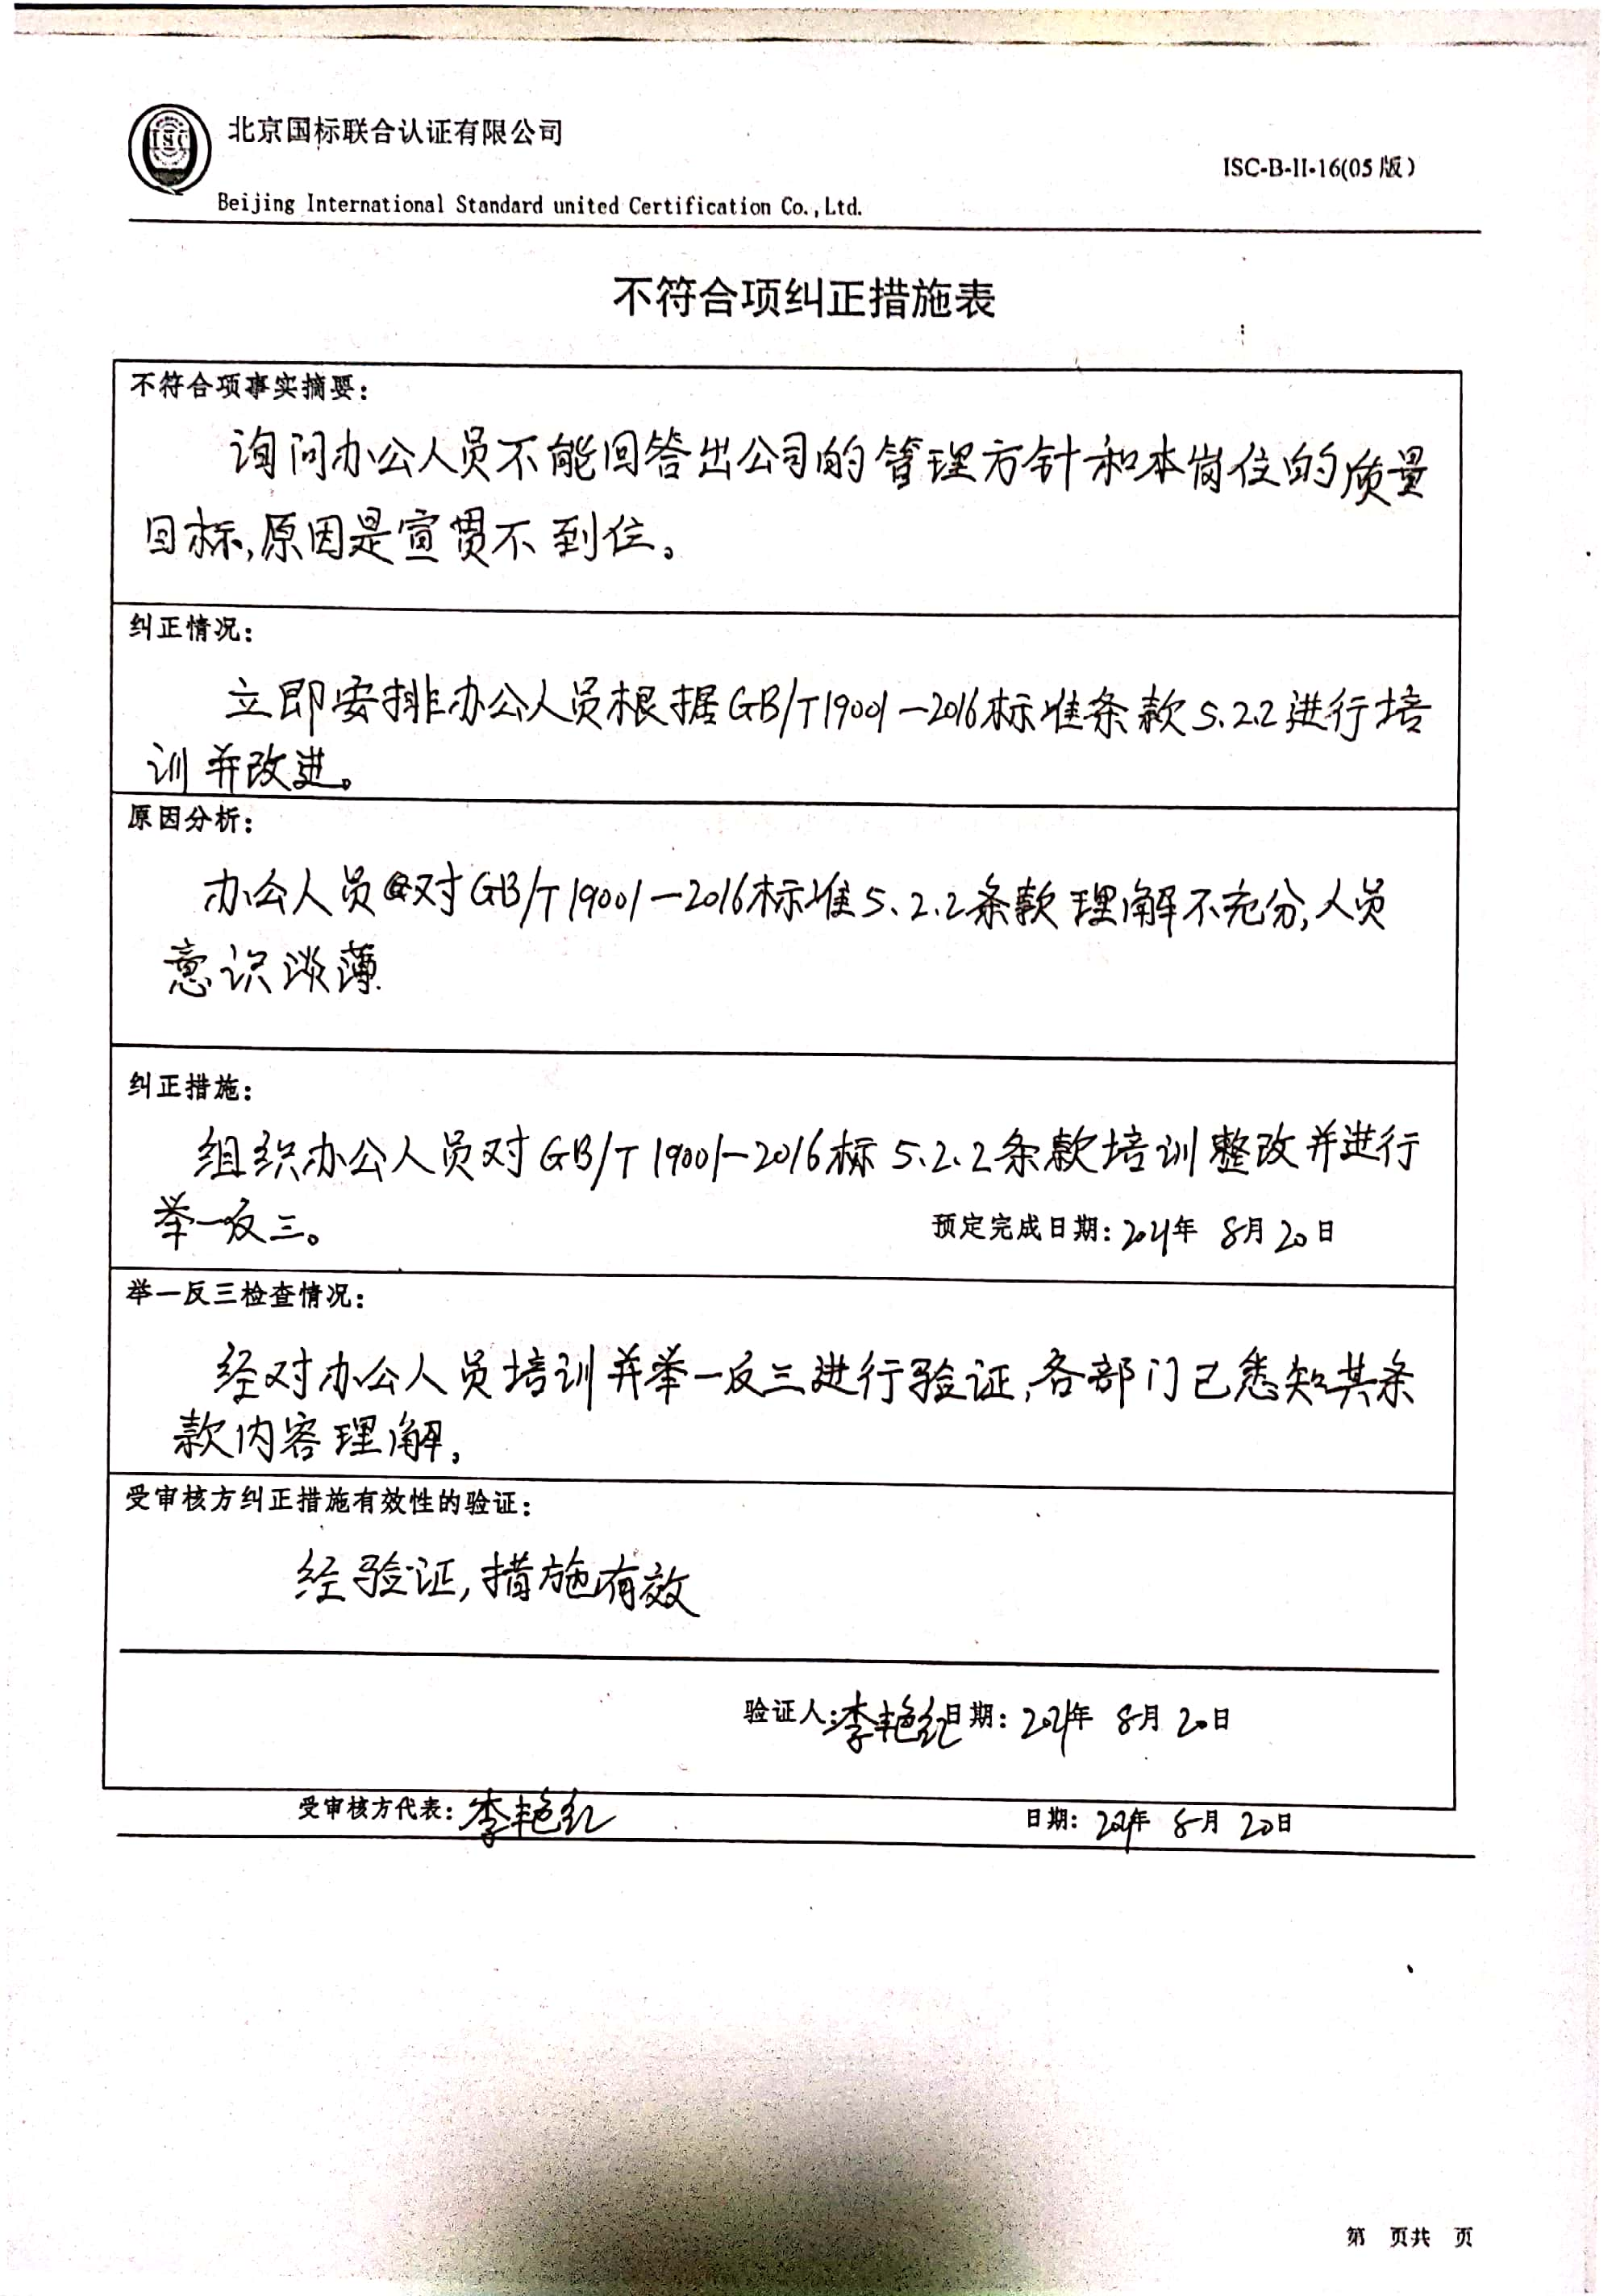 ISC
北京国标联合认证有限公司
ISC-B-II-16(05版)
Beijing International Standard united Certification Co.,Ltd.
不符合项纠正措施表
不符合项事实摘要:
询问办公人员不能回答出公司的管理方针和本岗位的质量
目标,原因是宣贯不到位。
纠正情况:
立即安排办公人员根据GB/T19001-2016标准条款5.2.2进行培
训并改进。
原因分析:
办公人员对GB/T19001-2016标准5.2.2条款理解不充分,人员
意识淡薄.
纠正措施:
组织办公人员对GB/T19001-2016标5.2.2条款培训整改并进行
举一反三。 预定完成日期: 2021年 8月 20日
举一反三检查情况:
经对办公人员培训并举一反三进行验证,各部门已悉知其条
款内容理解,
受审核方纠正措施有效性的验证:
经验证,措施有效
验证人:李艳红 日期: 2021年 8月 20日
受审核方代表:李艳红 日期: 2021年 8月 20日
第 页共 页